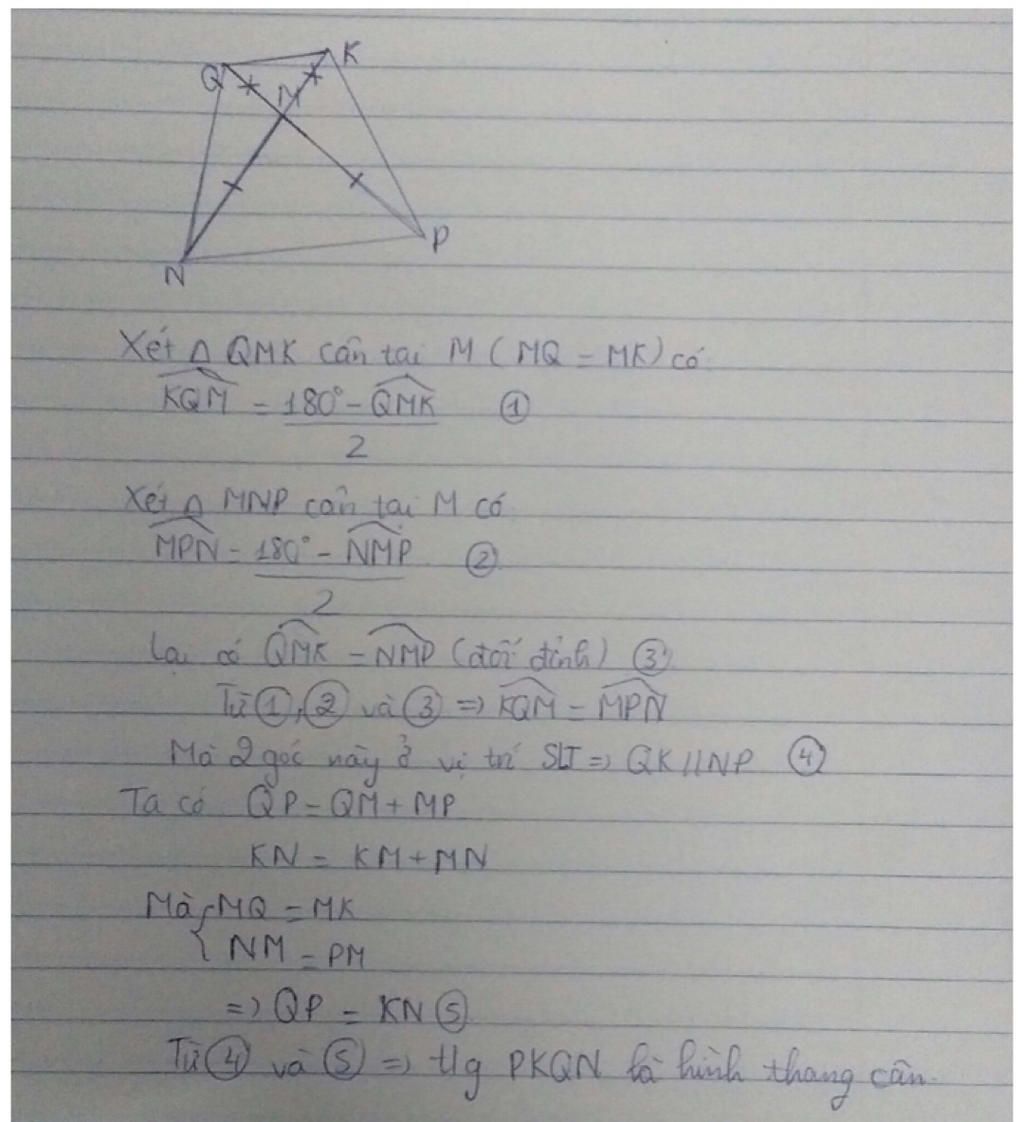 Q K
M
N P
Xét Δ QMK cân tại M (MQ = MK) có
KQM = 180° - QMK ①
2
Xét Δ MNP cân tại M có
MPN = 180° - NMP ②
2
Lại có QMK = NMP (đối đỉnh) ③
Từ ①, ② và ③ => KQM = MPN
Mà 2 góc này ở vị trí SLT => QK // NP ④
Ta có QP = QM + MP
KN = KM + MN
Mà { MQ = MK
NM = PM
=> QP = KN ⑤
Từ ④ và ⑤ => tg PKQN là hình thang cân.